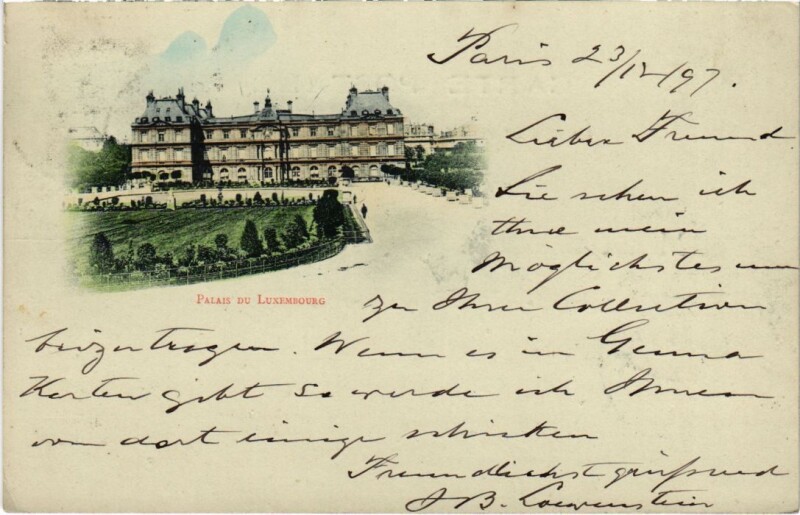 Paris 23/12/97.
Lieber Freund
Sie sehen ich
thue mein
Möglichstes um
PALAIS DU LUXEMBOURG
zu Ihrer Collection
beizutragen. Wenn es in Genua
Karten gibt so werde ich Ihnen
von dort einige schicken
Freundlichst grüssend
JB. Loewenstein